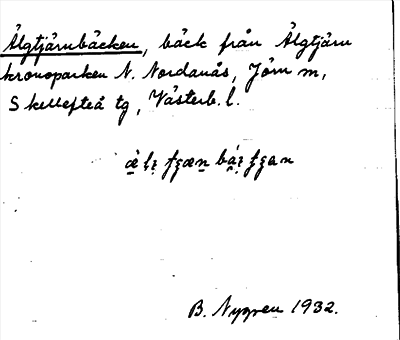 Älgtjärnbäcken, bäck från Älgtjärn
kronoparken N. Nordanås, Jörn m,
Skellefteå tg, Västerb. l.
B. Nygren 1932.